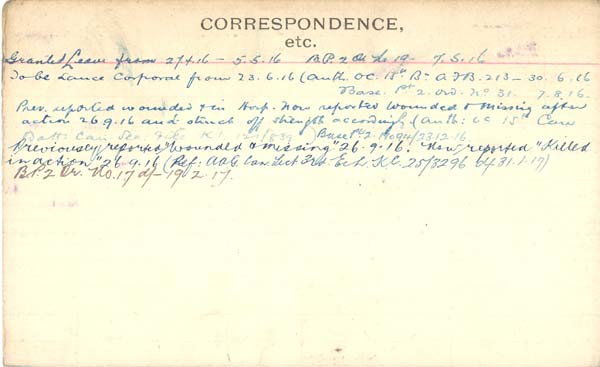 CORRESPONDENCE,
etc.
Granted Leave from 27.4.16 - 5.5.16 B.P.2 19 - 7.5.16
To be Lance Corporal from 23.6.16 (Auth. OC 15th Bn. A&B. 213 - 30.6.16
Base. Pt 2. ord. No 31. 7.8.16.
Prev. reported wounded & in Hosp. Now reported Wounded & Missing after
action 26.9.16 and struck off strength accordingly (Auth: OC 15th Can
Battn Can. Sec. File K1. /839) (Base Pt 2. No 94/23.12.16
Previously reported "Wounded & missing" 26.9.16. Now reported "Killed
in action" 26.9.16 (Ref: AAG Can. Sect 3rd Ech. K.C. 25/3296 d/31.1.17)
B.P.2 Or. No. 17 d/- 19.2.17.